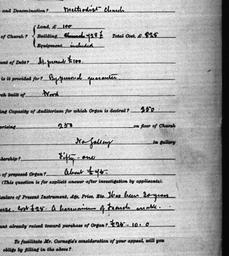 and Denomination? Methodist Church
Land, £ 100
of Church? Building Church 425 £ Total Cost, £ 525
Equipment included
unt of Debt? At present £100.
is it provided for? By personal guarantee
rch built of Wood
ing Capacity of Auditorium for which Organ is desired? 250
rising 250 on floor of Church
No Gallery in Gallery
bership? Fifty-one
of proposed Organ? About £45
(This question is for explicit answer after investigation by applicants).
iculars of Present Instrument, Age, Price, &c. Has been 20 years
use. Cost £25. A harmonium of French make.
unt already raised toward purchase of Organ? £24.10.0
To facilitate Mr. Carnegie's consideration of your appeal, will you
oblige by filling in the above?